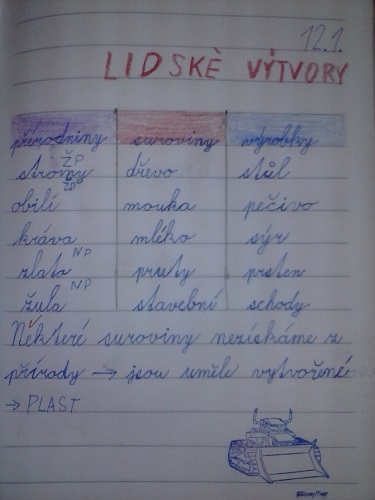 12.1.
LIDSKÉ VÝTVORY
přírodniny suroviny výrobky
ŽP
stromy dřevo stůl
ŽP
obilí mouka pečivo
kráva mléko sýr
NP
zlato pruty prsten
NP
žula stavební schody
Některé suroviny nezískáme z
přírody → jsou uměle vytvořené
→ PLAST